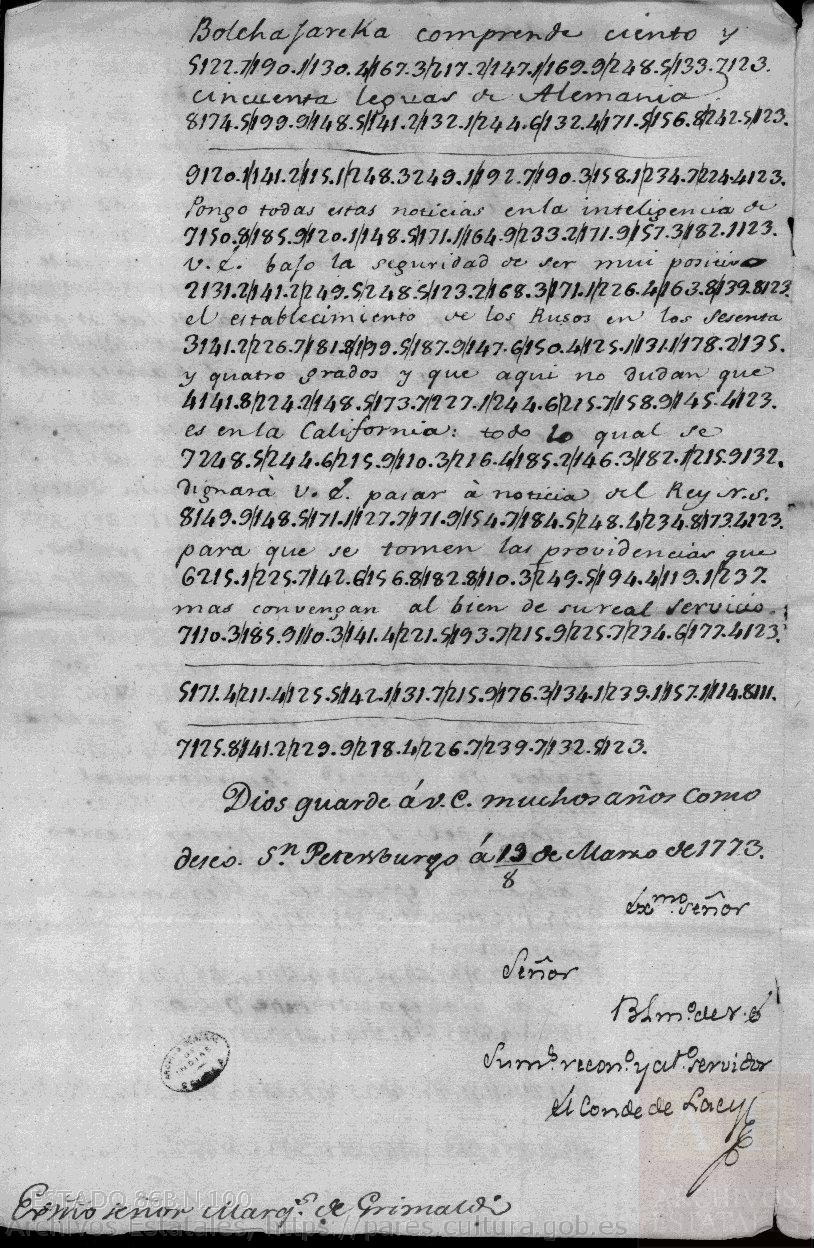 Bolchajareka comprende ciento y
5122.7/190.1/130.4/167.3/217.2/147.1/169.9/248.5/133.7/123.
cincuenta leguas de Alemania
8174.5/199.9/148.5/141.2/132.1/244.6/132.4/171.5/156.8/242.5/123.
9120.1/141.2/115.1/248.3249.1/192.7/190.3/158.1/234.7/224.4123.
Pongo todas estas noticias en la inteligencia de
7150.8/185.9/120.1/148.5/171.1/164.9/233.2/171.9/157.3/182.1/123.
V.E. bajo la seguridad de ser mui positivo
2131.2/141.2/249.5/248.5/123.2/168.3/171.1/226.4/163.8/139.8123.
el establecimiento de los Rusos en los sesenta
3141.2/226.7/181.8/199.5/187.9/147.6/150.4/125.1/131.1/178.2/135.
y quatro grados y que aqui no dudan que
4141.8/224.2/148.5/173.7/227.1/244.6/215.7/158.9/145.4/123.
es en la California: todo lo qual se
7248.5/244.6/215.9/110.3/216.4/185.2/146.3/182.1/215.9132.
dignarà V.E. pasar à noticia del Rey N.S.
8149.9/148.5/171.1/127.7/171.9/154.7/184.5/248.4/234.8/173.4123.
para que se tomen las providencias que
6215.1/225.7/142.6/156.8/182.8/110.3/249.5/194.4/119.1/237.
mas convengan al bien de su real servicio.
7110.3/185.9/110.3/141.4/221.5/193.7/215.9/225.7/234.6/177.4123.
5171.4/211.4/125.5/142.1/131.7/215.9/176.3/134.1/239.1/157.1/114.8111.
7125.8/141.2/229.9/218.4/226.7/239.7/132.5/123.
Dios guarde á V.E. muchos años como
deseo. Sn. Petersburgo á 19/8 de Marzo de 1773.
Exmo. señor
Señor
BLmo. de V.E
su mo. recono. y ato. servidor
el Conde de Lacy
Exmo señor Marqs. de Grimaldi
ESTADO 86B,N.100
Archivos Estatales, https://pares.cultura.gob.es